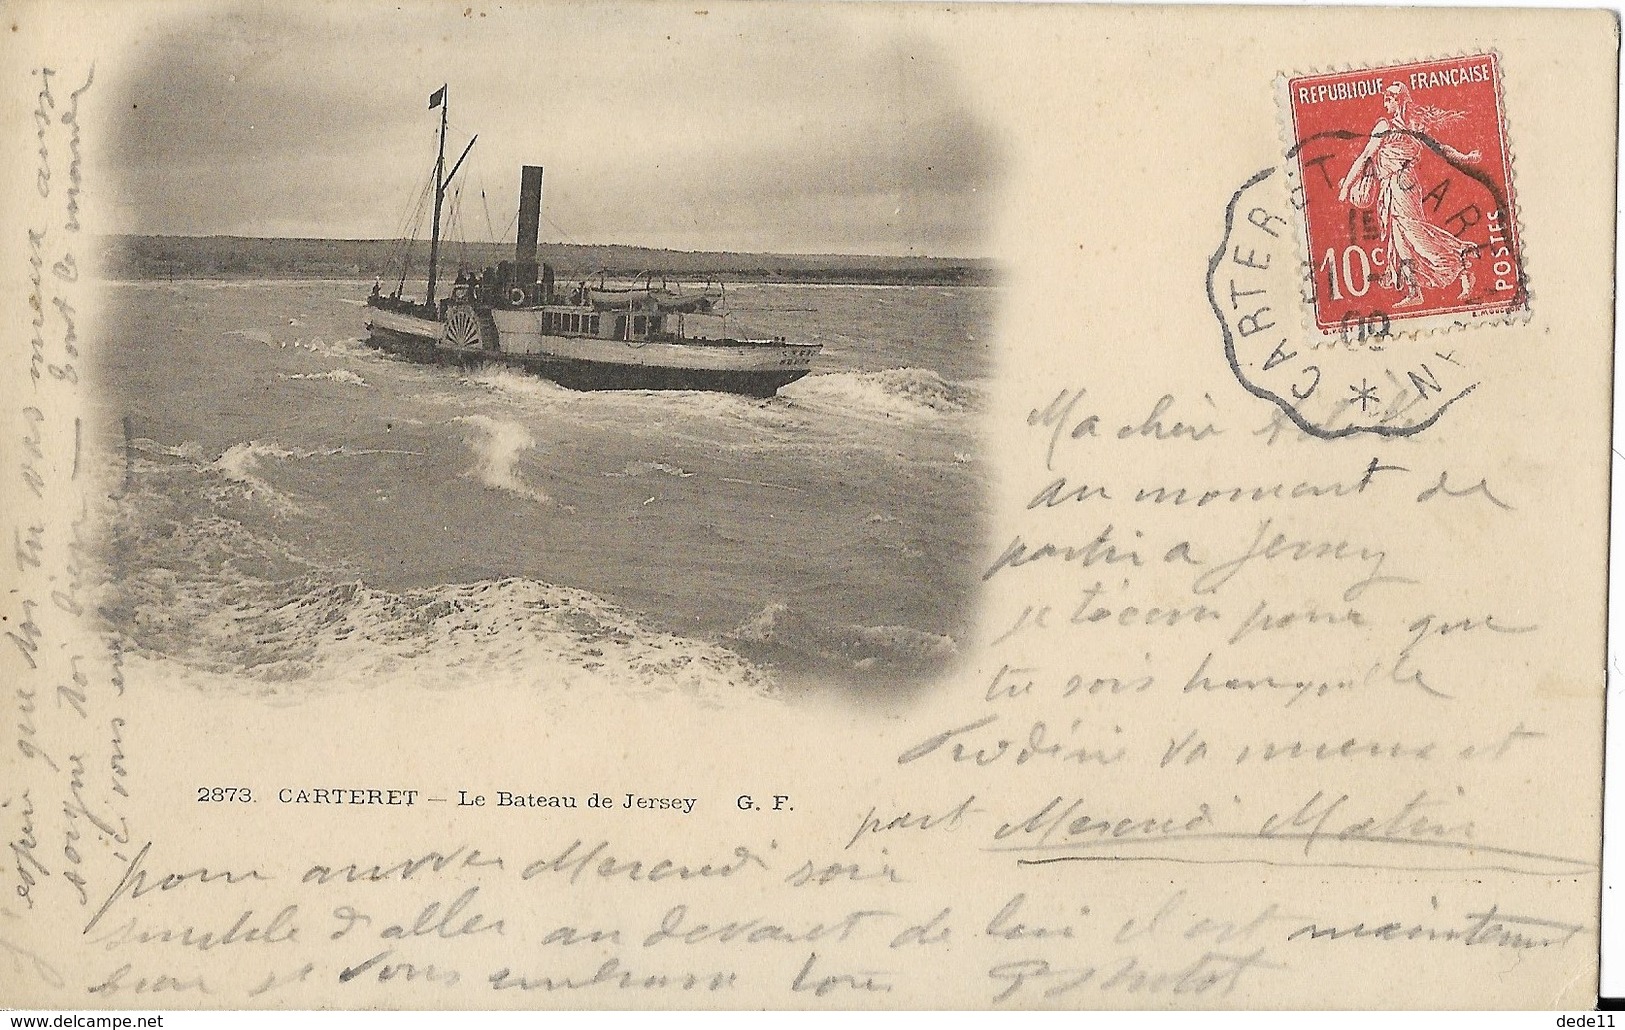 REPUBLIQUE FRANÇAISE
10c POSTES
CARTERET A CARENTAN
09
2873. CARTERET — Le Bateau de Jersey G. F.
Ma chère
au moment de
partir a Jersey
je t'écris pour que
tu sois tranquille
va mieux et
part Mercredi Matin
pour arriver Mercredi soir
d'aller au devant de lui il est maintenant
je vous embrasse tous
J'espère que toi tu vas mieux aussi
soigne toi bien — tout le monde
ici vous embrasse
delcampe.net
dede11